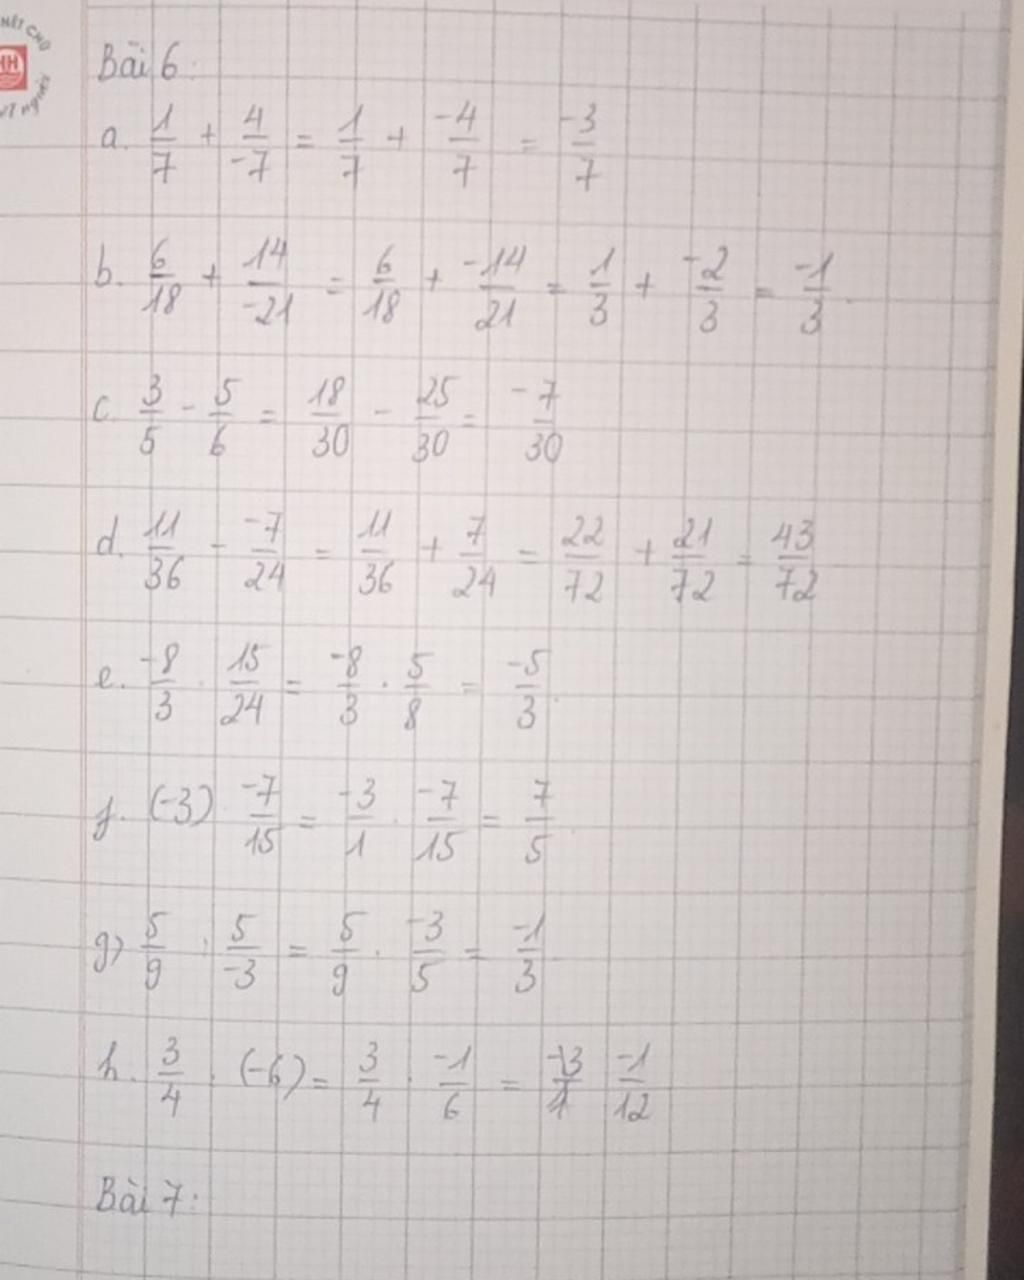 NÉT CHỮ
HH
NẾT NGƯỜI
Bài 6:
a. 1/7 + 4/-7 = 1/7 + -4/7 = -3/7
b. 6/18 + 14/-21 = 6/18 + -14/21 = 1/3 + -2/3 = -1/3.
c. 3/5 - 5/6 = 18/30 - 25/30 = -7/30
d. 11/36 - -7/24 = 11/36 + 7/24 = 22/72 + 21/72 = 43/72
e. -8/3 . 15/24 = -8/3 . 5/8 = -5/3.
f. (-3) . -7/15 = -3/1 . -7/15 = 7/5.
g) 5/9 : 5/-3 = 5/9 . -3/5 = -1/3
h. 3/4 : (-6) = 3/4 . -1/6 = -1/12
Bài 7: